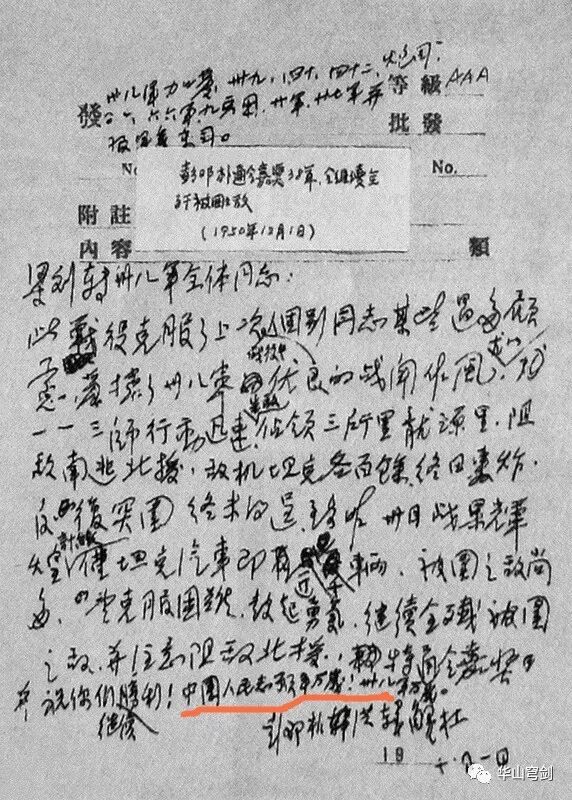 卅八軍力必蓁，卅九，四十，四十二，炮司；
發 六六軍，九兵團，廿軍，廿七軍并 等級AAA
報軍委東司。 批發
No. No.
彭邓朴通令嘉奖38军，
被围之敌
(1950年12月1日)
附註
內容 類
梁刘转卅八军全体同志：
此战役克服了上次个别同志某些过多顾
虑，发挥了卅八军优良的战闘作風，尤以
一一三師行动迅速，佔領三所里龍源里，阻
敌南逃北援，敌机坦克各百餘，终日轟炸，
反復突围，终未得逞，至昨卅日战果辉
煌，计仅坦克汽車即近千輛，被围之敌尚
多，望克服困难，鼓起勇氣，继续全殲被围
之敌，并注意阻敌北援，特通令嘉奖，
并祝你们继续勝利！中国人民志愿军万歲！卅八军万歲。
彭邓朴洪韓解杜
19
华山穹剑